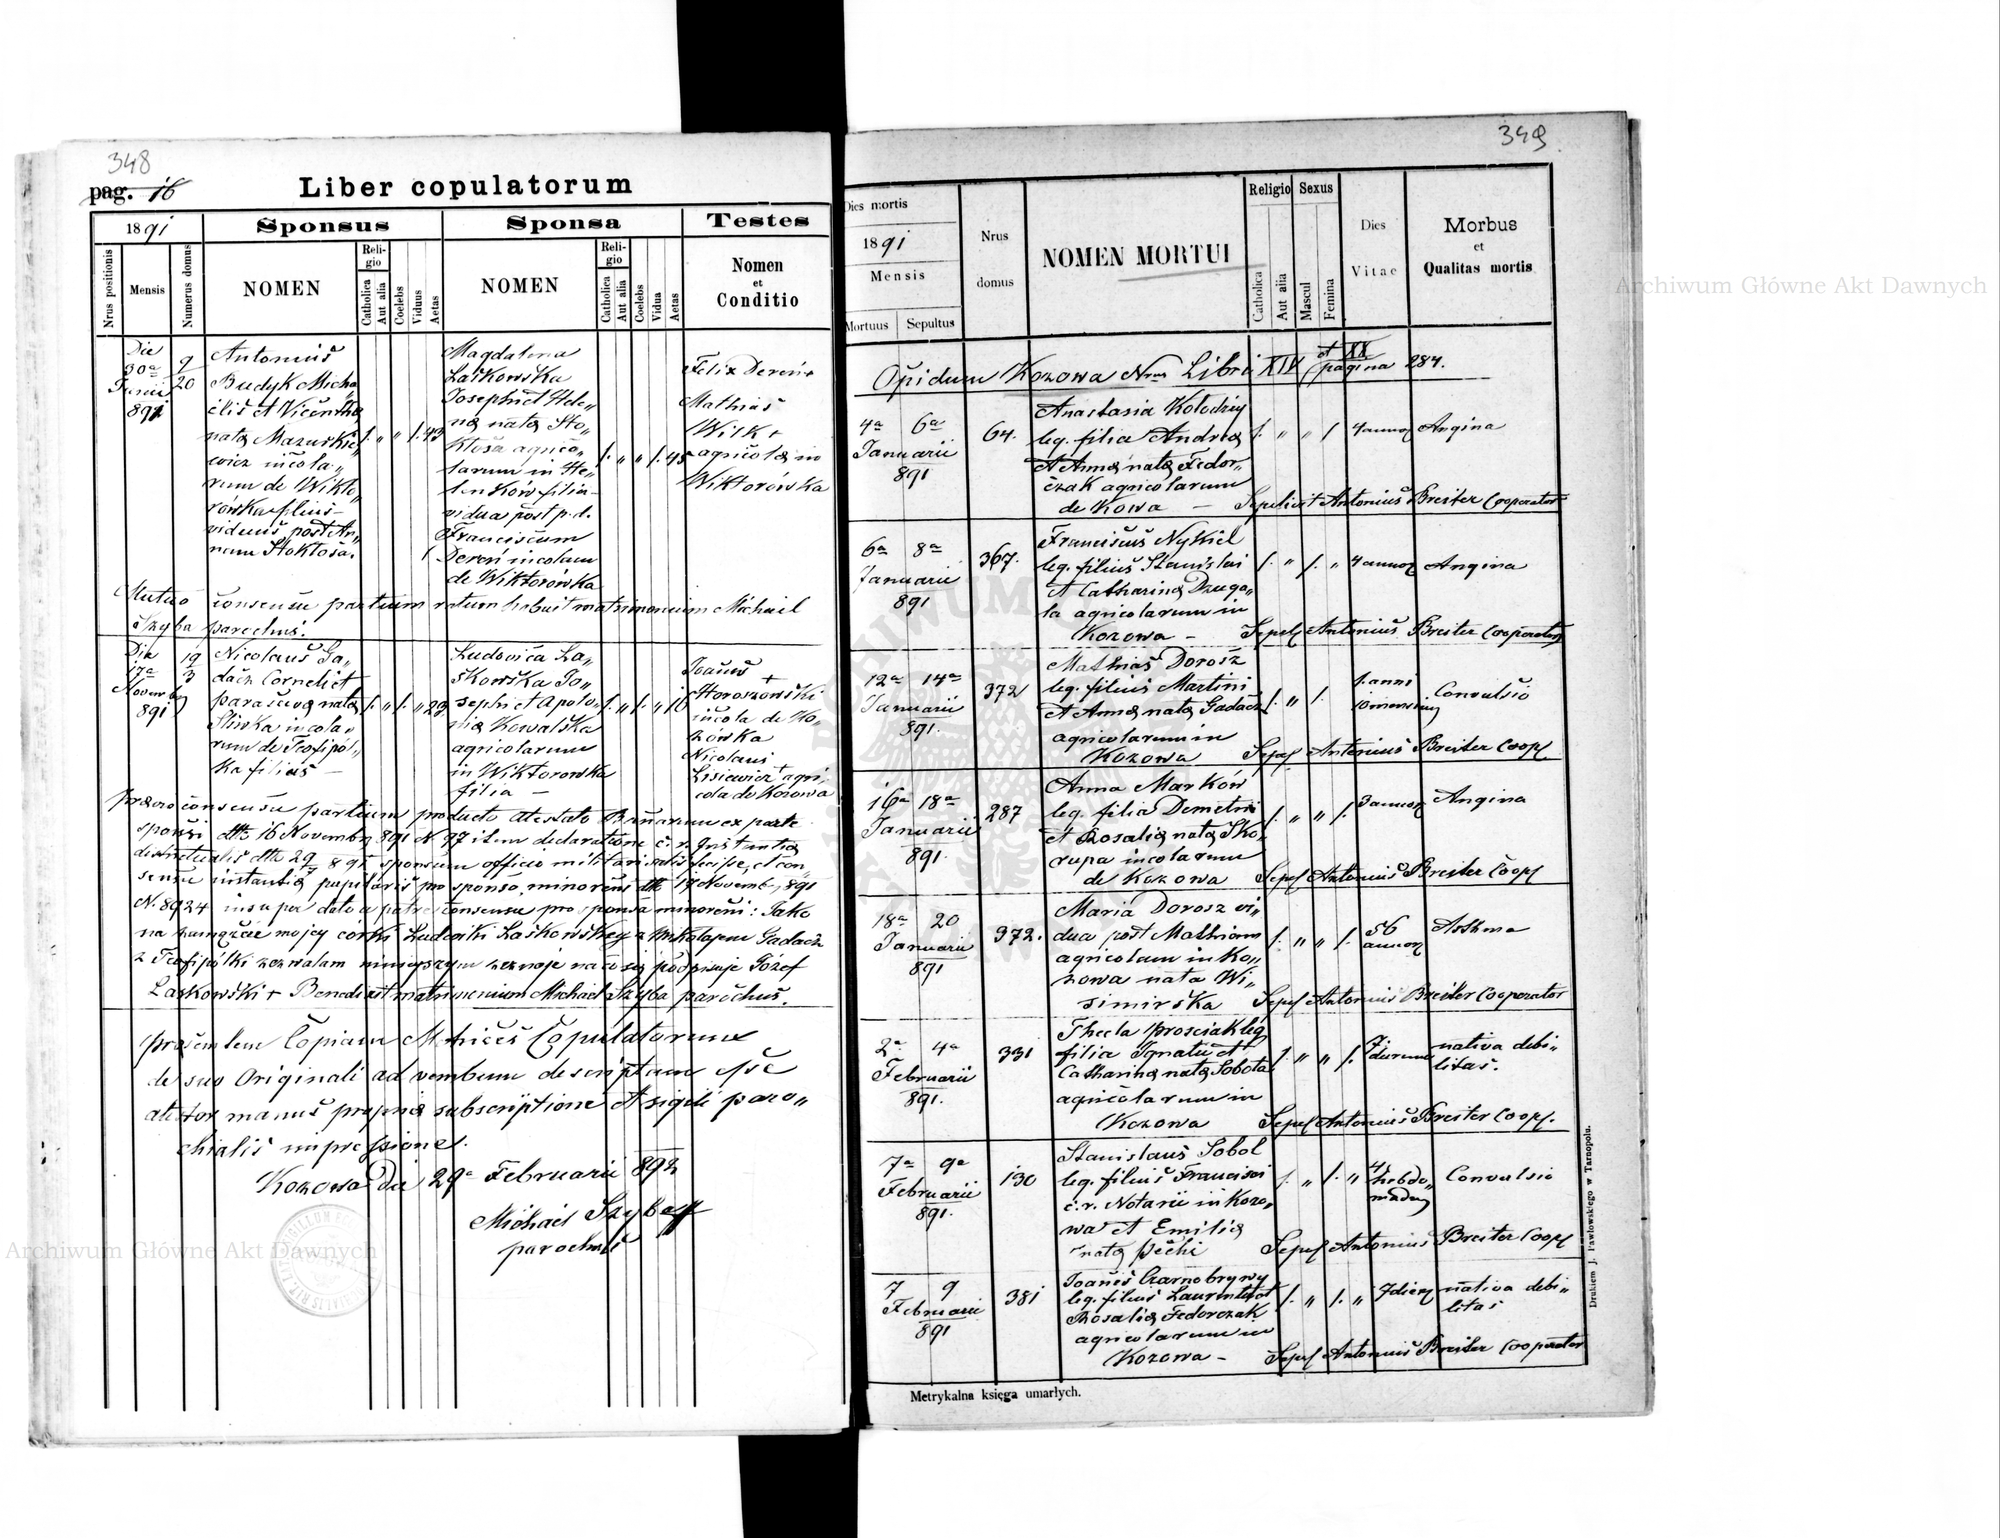 348
pag. 16
Liber copulatorum
1891
Sponsus
Sponsa
Testes
Nrus positionis
Mensis
Numerus domus
NOMEN
Religio
Catholica
Aut alia
Coelebs
Viduus
Aetas
NOMEN
Religio
Catholica
Aut alia
Coelebs
Vidua
Aetas
Nomen
et
Conditio
Die
30a
Junii
891
9
20
Antonius
Budyk Micha
elis et Vicentia
nata Mazurkie
wicz incola„
rum de Wikto„
rówka filius–
viduus post An„
nam Stokłosa.
1. „ „ 1. 43
Magdalena
Laskowska
Josephi et Hele„
na nata Sto„
kłosa agrico„
larum in He„
lenków filia–
vidua post p. d.
Franciscum
Dereń incolam
de Wiktorówka
1. „ „ 1. 45
Felix Dereń +
Mathias
Wilk +
agricola in
Wiktorówka
Mutuo consensu partium ratum habuit matrimonium Michael
Szyba parochus.
Die
17a
Novembr
891
19
3
Nicolaus Ga„
dacz Cornelii et
parasceva nata
Sliwka incola„
rum de Teofipól„
ka filius –
1. „ 1. „ 23
Ludovica La„
skowska Jo„
sephi et Apolo„
nia Kowalska
agricolarum
in Wiktorowka
filia –
1. „ 1. „ 16
Joannes +
Horoszowski
incola de Ko„
zówka
Nicolaus +
Lisiewicz agri„
cola de Kozowa
consensu partium producto atestato Bannorum ex parte
sponsi dtto 16 Novembr 891 N 97 item declaratione c. r. Instantia
sponsum officio militari satis fecisse, et con„
sensu instantia pupilaris pro sponso minoreni dtto 17 Novemb, 891
N. 8924 insuper dato a patre consensu pro sponsa minoreni: Jako
na zamązcie mojej corki Ludwiki Laskowskiej z Mikołajem Gadacz
z Teofipólki zezwalam niniejszym zeznaje na co się podpisuje Józef
Laskowski + Benedixit matrimonium Michael Szyba parochus.
Præsentem Copiam Matrices Copulatorum
de suo Originali ad verbum descriptam esse
atestor manus propria subscriptione et sigili paro„
chialis impressione.
Kozowa Die 29a Februarii 892
Michael Szyba
parochus
349
Dies mortis
1891
Mensis
Mortuus
Sepultus
Nrus
domus
NOMEN MORTUI
Religio
Catholica
Aut alia
Sexus
Mascul
Femina
Dies
Vitae
Morbus
et
Qualitas mortis
Opidum Kozowa Nrus Libri XIV et XX pagina 284.
4a 6a
Januarii
891
64.
Anastasia Kołodziy
leg. filia Andrea
et Anna nata Fedor„
czak agricolarum
de Kowa –
1. „ „ 1
4 annor
Angina
Sepelivit Antonius Breiter Cooperator
6a 8a
Januarii
891
367.
Franciscus Nykiel
leg. filius Stanislai
et Catharina Dzugo„
la agricolarum in
Kozowa –
1. „ 1. „
4 annor
Angina
Sepel Antonius Breiter Cooperator
12a 14a
Januarii
891.
372
Mathias Dorosz
leg. filius Martini
et Anna nata Gadacz
agricolarum in
Kozowa
1. „ 1.
1. anni
10 mensium
Convulsio
Sepel Antonius Breiter Coop.
16a 18a
Januarii
891.
287
Anna Marków
leg. filia Demetrii
et Rosalia nata Sko„
rupa incolarum
de Kozowa
1. „ „ 1.
3 annor
Angina
Sepel Antonius Breiter Coop
18a 20
Januarii
891
372.
Maria Dorosz vi„
dua post Mathiam
agricolam in Ko„
zowa nata Wi„
simirska
1. „ „ 1.
56
annor
Asthma
Sepel Antonius Breiter Cooperator
2a 4a
Februarii
891.
331
Thecla Prosciak leg
filia Ignatii et
Catharina nata Sobota
agricolarum in
Kozowa
1. „ „ 1.
7 dierum
nativa debi„
litas.
Sepel Antonius Breiter Coop.
7a 9a
Februarii
891.
130
Stanislaus Sobol
leg. filius Francisci
c. r. Notarii in Kozo„
wa et Emilia
nata Pechi
1. „ 1. „
4
hebdo„
madar
Convulsio
Sepel Antonius Breiter Coop
7 9
Februarii
891
381
Joanes Czarnobrywy
leg. filius Laurentii et
Rosalia Fedorczak
agricolarum in
Kozowa –
1. „ 1. „
7 dier
nativa debi„
litas
Sepel Antonius Breiter Cooperator
Metrykalna księga umarłych.
Drukiem J. Pawłowskiego w Tarnopolu.
Archiwum Główne Akt Dawnych
Archiwum Główne Akt Dawnych